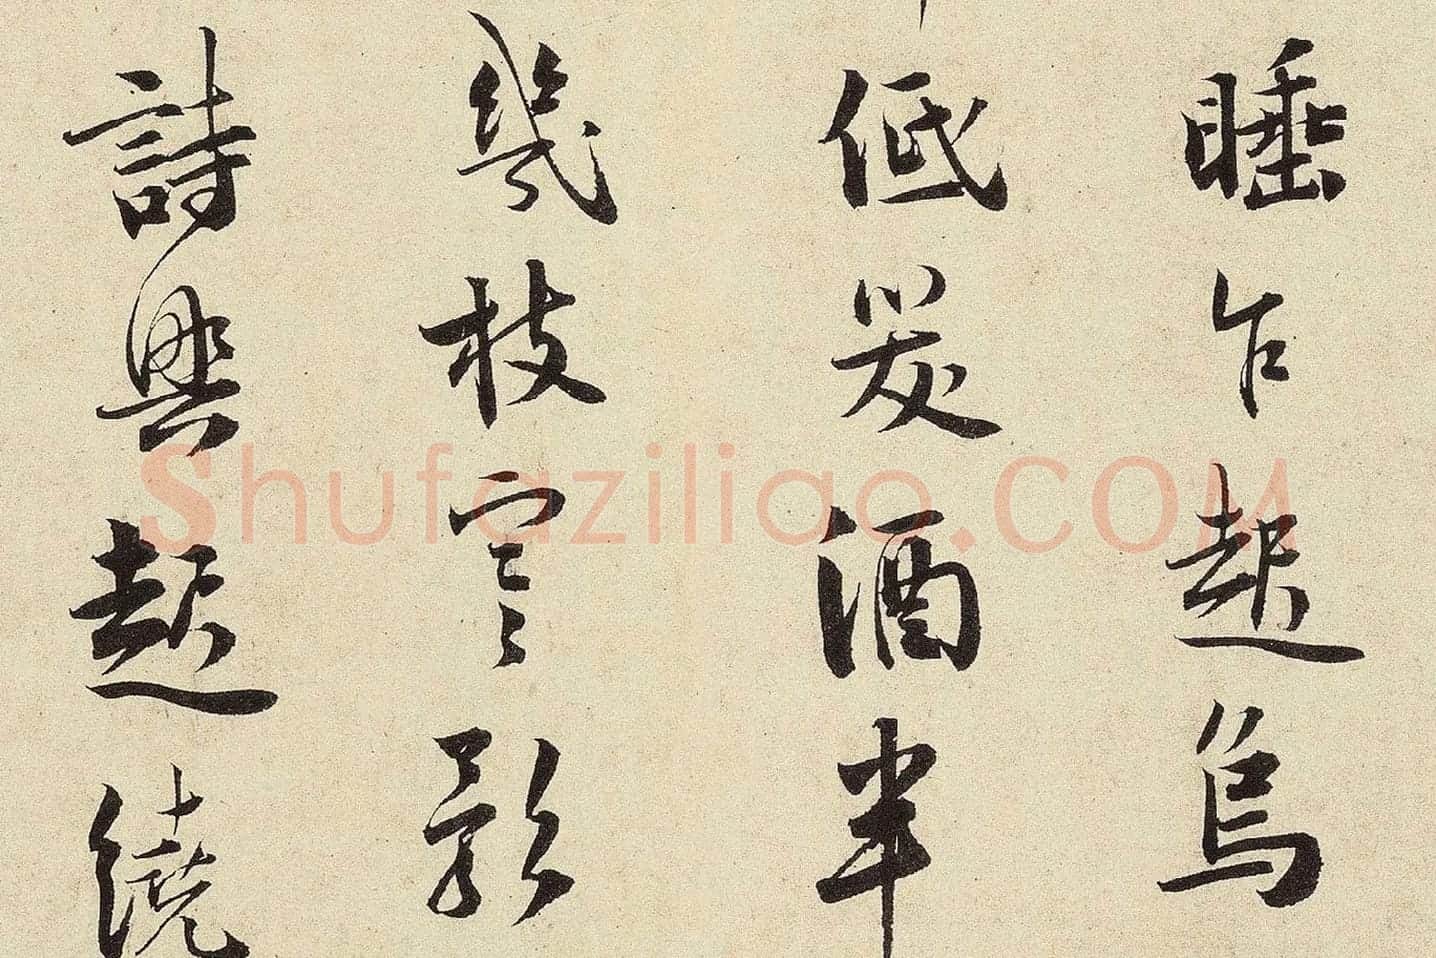 睡乍起烏
低炭酒半
幾枝寒影
詩興起繞
Shufaziliao.COM